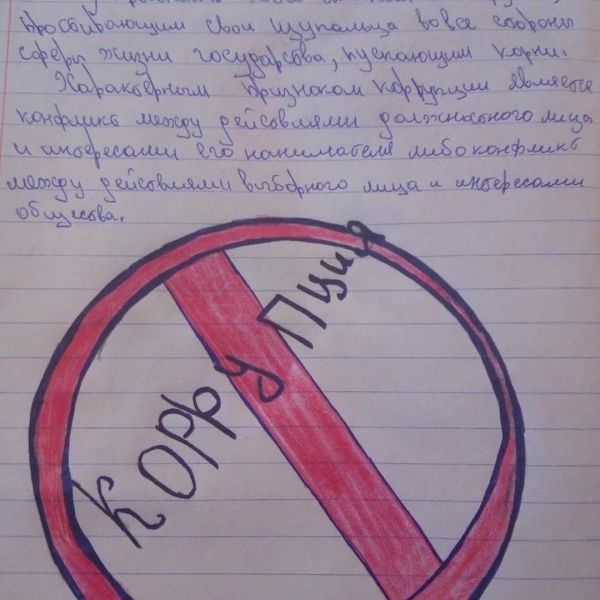 простирающим свои щупальца во все стороны
сферы жизни государства, пускающим корни.
Характерным признаком коррупции является
конфликт между действиями должностного лица
и интересами его нанимателя либо конфликт
между действиями выборного лица и интересами
общества.
Коррупция